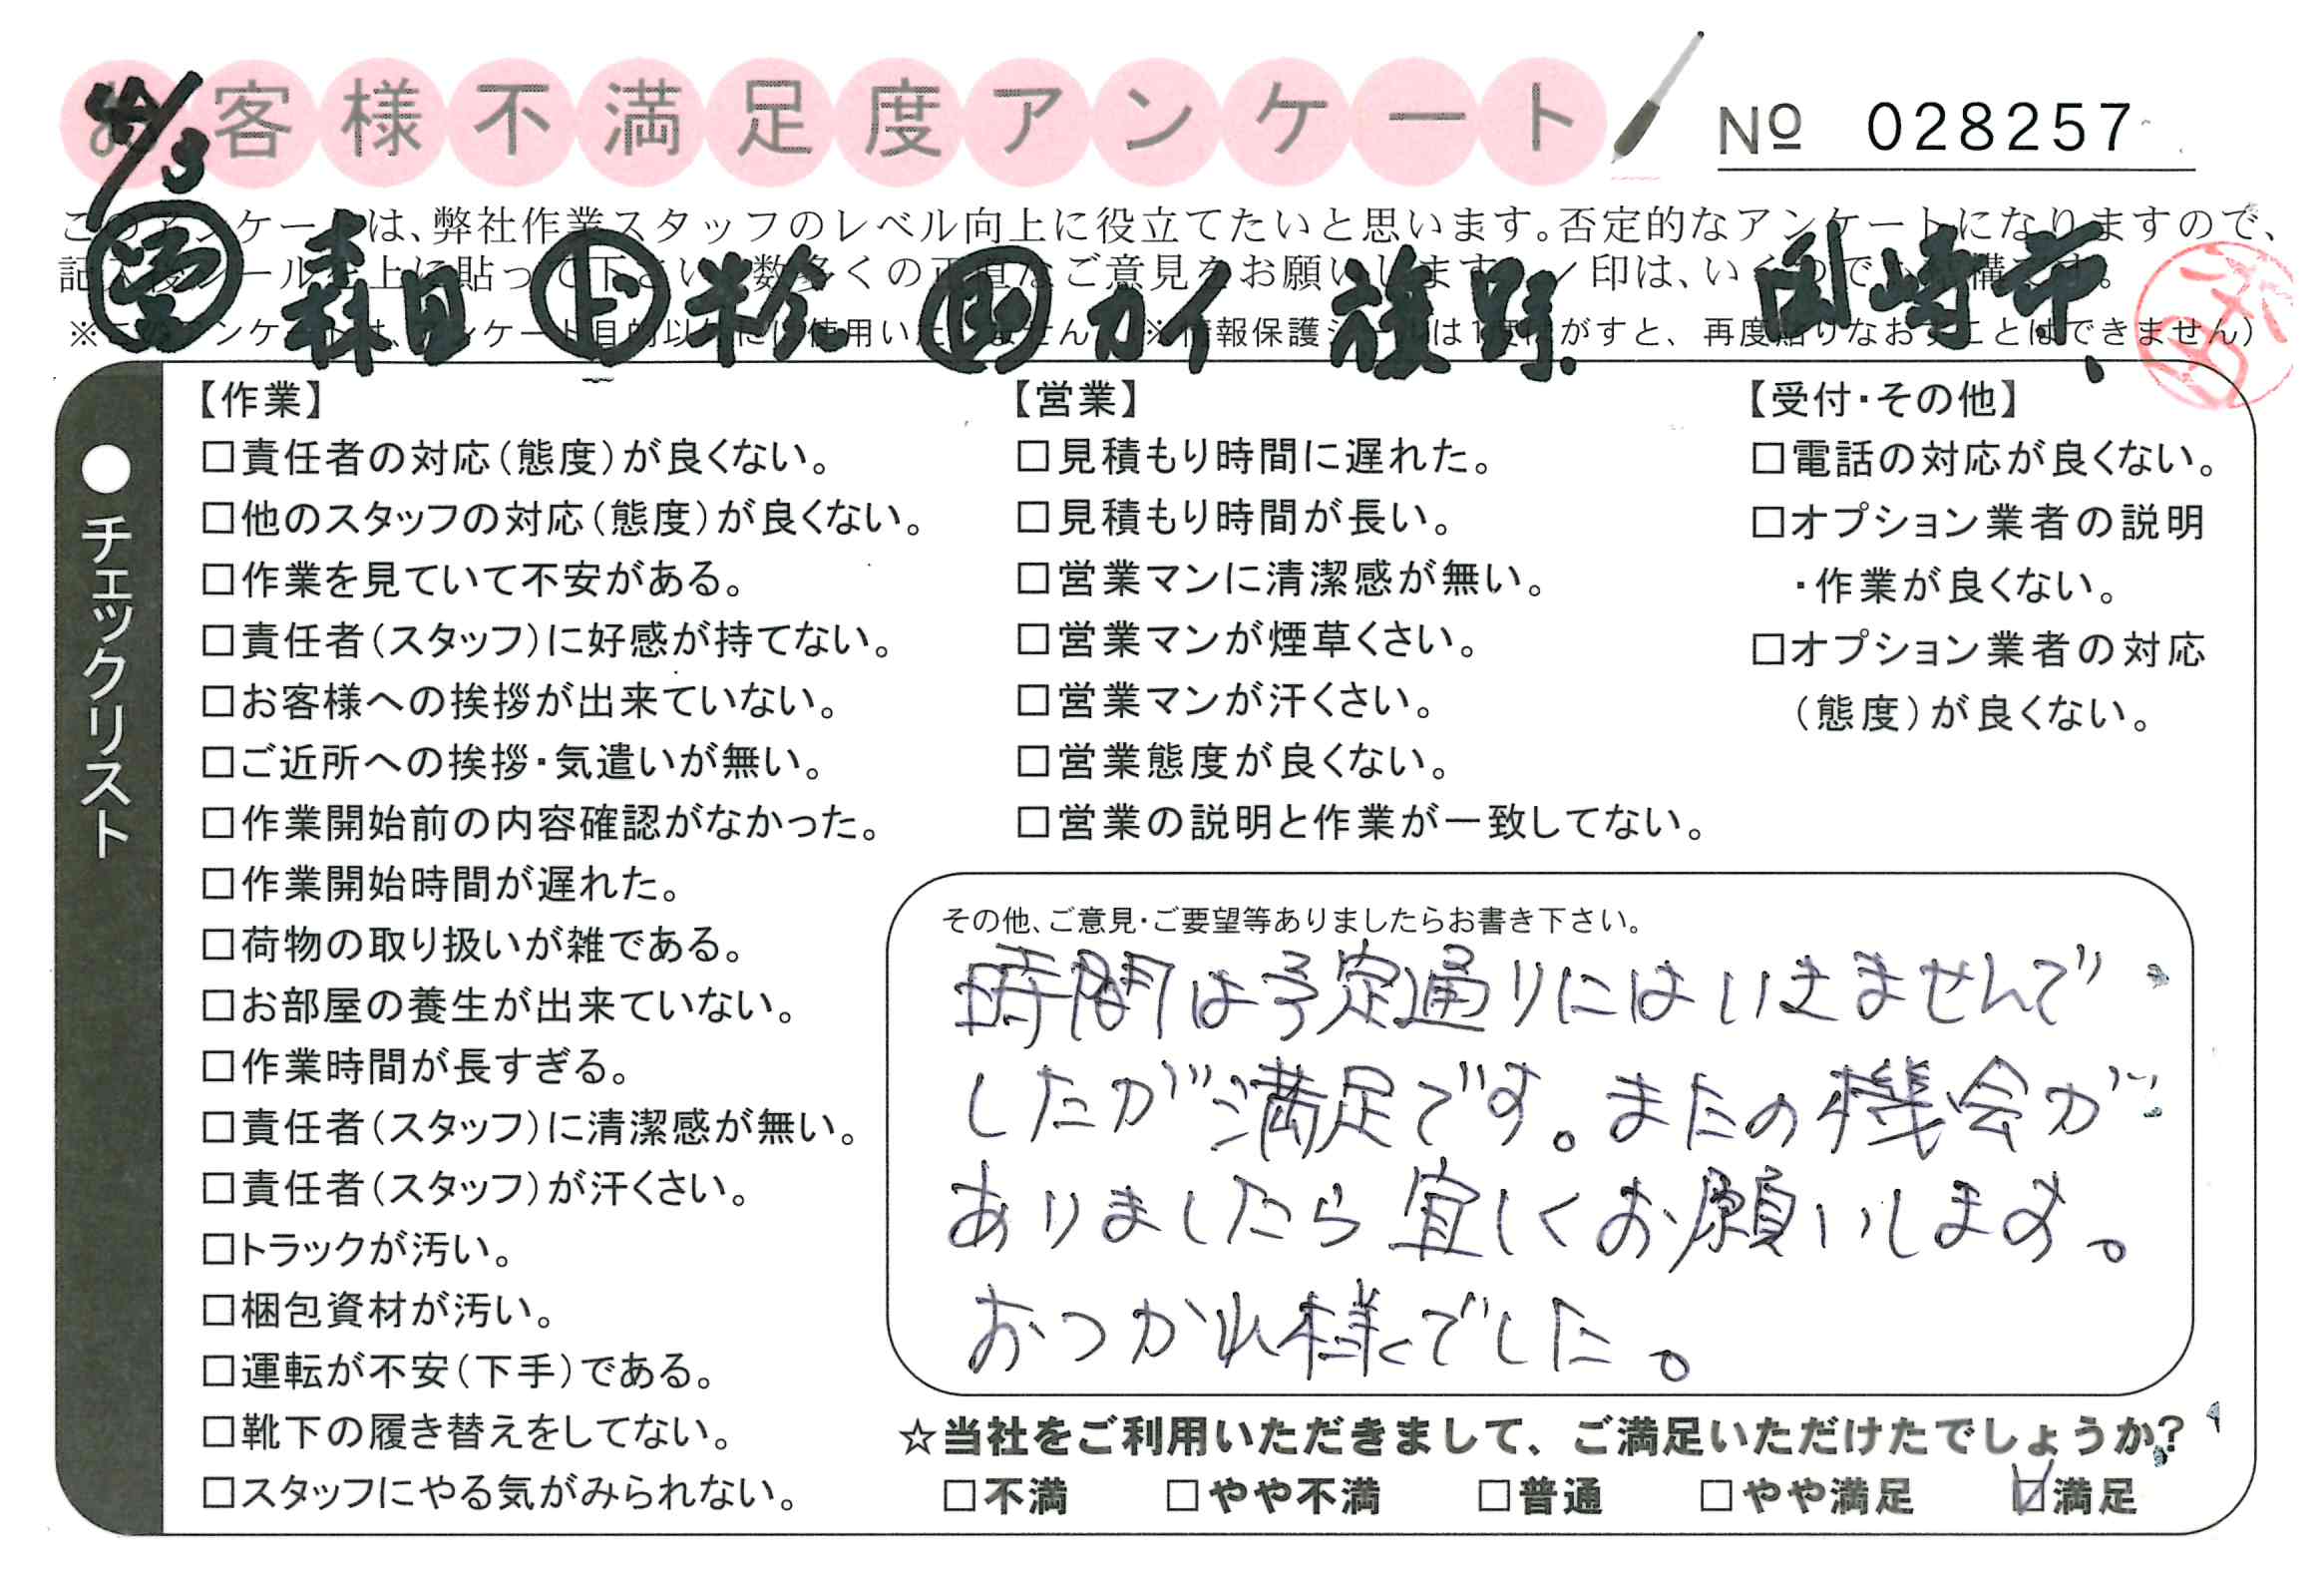 お客様不満足度アンケート
№ 028257
4/3
このアンケートは、弊社作業スタッフのレベル向上に役立てたいと思います。否定的なアンケートになりますので、
森目 米倉 カイ 牧野 岡崎市
【作業】
□責任者の対応(態度)が良くない。
□他のスタッフの対応(態度)が良くない。
□作業を見ていて不安がある。
□責任者(スタッフ)に好感が持てない。
□お客様への挨拶が出来ていない。
□ご近所への挨拶・気遣いが無い。
□作業開始前の内容確認がなかった。
□作業開始時間が遅れた。
□荷物の取り扱いが雑である。
□お部屋の養生が出来ていない。
□作業時間が長すぎる。
□責任者(スタッフ)に清潔感が無い。
□責任者(スタッフ)が汗くさい。
□トラックが汚い。
□梱包資材が汚い。
□運転が不安(下手)である。
□靴下の履き替えをしてない。
□スタッフにやる気がみられない。
【営業】
□見積もり時間に遅れた。
□見積もり時間が長い。
□営業マンに清潔感が無い。
□営業マンが煙草くさい。
□営業マンが汗くさい。
□営業態度が良くない。
□営業の説明と作業が一致してない。
【受付・その他】
□電話の対応が良くない。
□オプション業者の説明
・作業が良くない。
□オプション業者の対応
(態度)が良くない。
●チェックリスト
その他、ご意見・ご要望等ありましたらお書き下さい。
時間は予定通りにはいきませんで
したが満足です。またの機会が
ありましたら宜しくお願いします。
おつかれ様でした。
☆当社をご利用いただきまして、ご満足いただけたでしょうか?
□不満 □やや不満 □普通 □やや満足 ☑満足